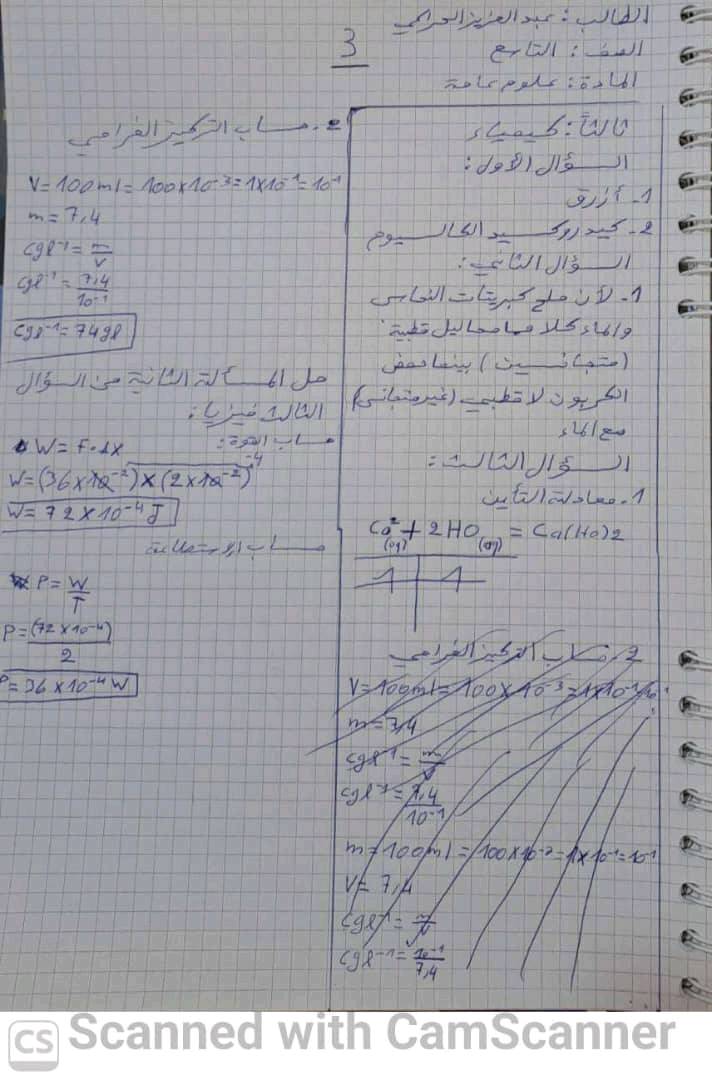 الطالب: عبد العزيز الحراكي
الصف: التاسع
المادة: علوم عامة
3
ثالثاً: كيمياء
السؤال الأول:
1- أزرق
2- هيدروكسيد الكالسيوم
السؤال الثاني:
1- لأن ملح كبريتات النحاس
والماء كلاهما محاليل قطبية
(متجانسين) بينما بعض
الكربون لا قطبي (غير متجانس)
مع الماء
السؤال الثالث:
1- معادلة التأين
Ca²(aq) + 2HO(aq) = Ca(Ho)2
1 1
2- حساب التركيز الغرامي
V=100ml = 100x10-3=1x10-1=10-1
m=7,4
Cgl-1 = m/V
Cgl-1 = 7,4/10-1
m=100ml = 100x10-3=1x10-1=10-1
V= 7,4
Cgl-1 = m/V
Cgl-1 = 10-1/7,4
2- حساب التركيز الغرامي
V=100ml = 100x10-3=1x10-1=10-1
m=7,4
Cgl-1 = m/V
Cgl-1 = 7,4/10-1
Cgl-1 = 74gl
حل المسألة الثانية من السؤال
الثالث فيزياء:
حساب القوة:
W= F.Δx
W=(36x10-2)x(2x10-2)-4
W= 72x10-4 J
حساب الاستطاعة
P= W/T
P= (72x10-4)/2
P=36x10-4 W
CS Scanned with CamScanner